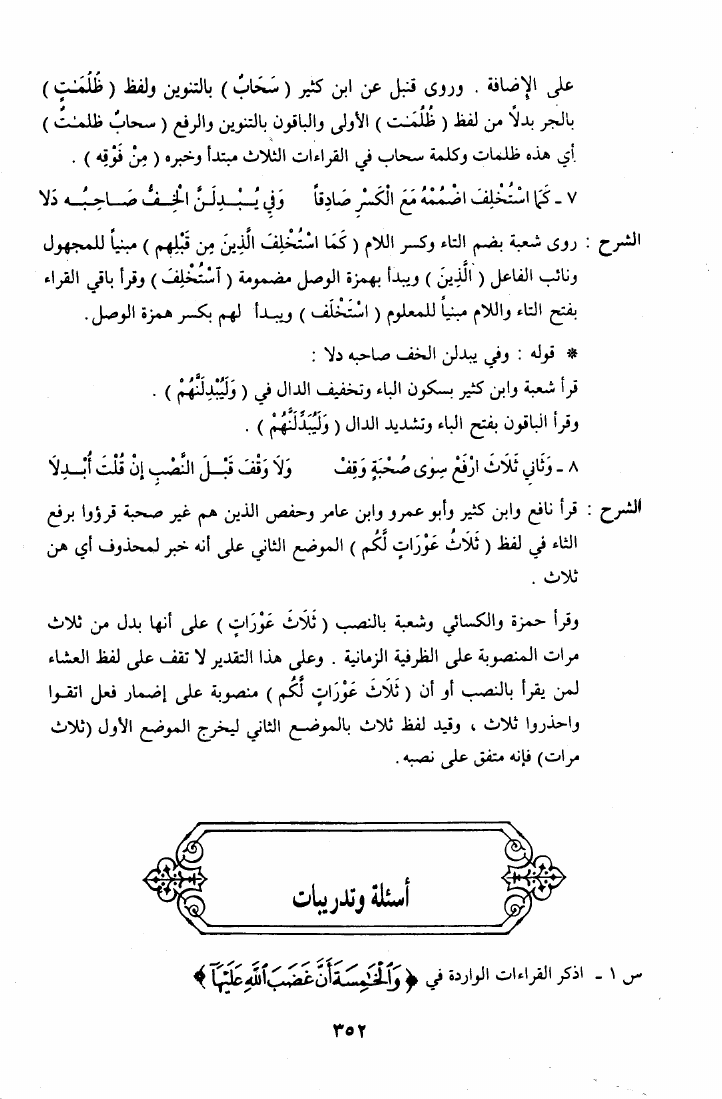 على الإضافة . وروى قنبل عن ابن كثير ( سَحَابٌ ) بالتنوين ولفظ ( ظُلُمَـٰتٍ )
بالجر بدلاً من لفظ ( ظُلُمَـٰت ) الأولى والباقون بالتنوين والرفع ( سحابٌ ظلمـٰتٌ )
أي هذه ظلمات وكلمة سحاب في القراءات الثلاث مبتدأ وخبره ( مِنْ فَوْقِه ) .
٧ ـ كَمَا اسْتُخْلِفَ اضْمُمْهُ مَعَ الْكَسْرِ صَادِقاً وَفِي يُـبْـدِلَـنَّ الْخِـفُّ صَـاحِـبُـه دَلا
الشرح : روى شعبة بضم التاء وكسر اللام ( كَمَا اسْتُخْلِفَ الَّذِينَ مِن قَبْلِهِم ) مبنياً للمجهول
ونائب الفاعل ( الَّذِينَ ) ويبدأ بهمزة الوصل مضمومة ( ٱسْتُخْلِفَ ) وقرأ باقي القراء
بفتح التاء واللام مبنياً للمعلوم ( اسْتَخْلَف ) ويبدأ لهم بكسر همزة الوصل .
* قوله : وفي يبدلن الخف صاحبه دلا :
قرأ شعبة وابن كثير بسكون الباء وتخفيف الدال في ( وَلَيُبْدِلَنَّهُمْ ) .
وقرأ الباقون بفتح الباء وتشديد الدال ( وَلَيُبَدِّلَنَّهُمْ ) .
٨ ـ وَثَانِي ثَلَاثَ ارْفَعْ سِوَى صُحْبَةٍ وَقِفْ وَلَا وَقْفَ قَبْـلَ النَّصْبِ إِنْ قُلْتَ أُبْـدِلَا
الشرح : قرأ نافع وابن كثير وأبو عمرو وابن عامر وحفص الذين هم غير صحبة قرؤوا برفع
الثاء في لفظ ( ثَلَاثُ عَوْرَاتٍ لَّكُم ) الموضع الثاني على أنه خبر لمحذوف أي هن
ثلاث .
وقرأ حمزة والكسائي وشعبة بالنصب ( ثَلَاثَ عَوْرَاتٍ ) على أنها بدل من ثلاث
مرات المنصوبة على الظرفية الزمانية . وعلى هذا التقدير لا تقف على لفظ العشاء
لمن يقرأ بالنصب أو أن ( ثَلَاثَ عَوْرَاتٍ لَّكُم ) منصوبة على إضمار فعل اتقـوا
واحذروا ثلاث ، وقيد لفظ ثلاث بالموضـع الثاني ليخرج الموضع الأول (ثلاث
مرات) فإنه متفق على نصبه .
أسئلة وتدريبات
س ١ ـ اذكر القراءات الواردة في ﴿ وَٱلْخَـٰمِسَةَ أَنَّ غَضَبَ ٱللَّهِ عَلَيْهَآ ﴾
٣٥٢